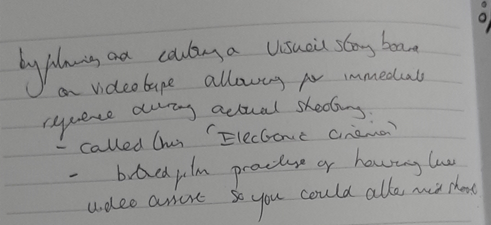 by planning and editing a visual story board
on videotape allowing for immediate
reference during actual shooting.
- called this "Electronic cinema"
- film practise of having live
video assist so you could